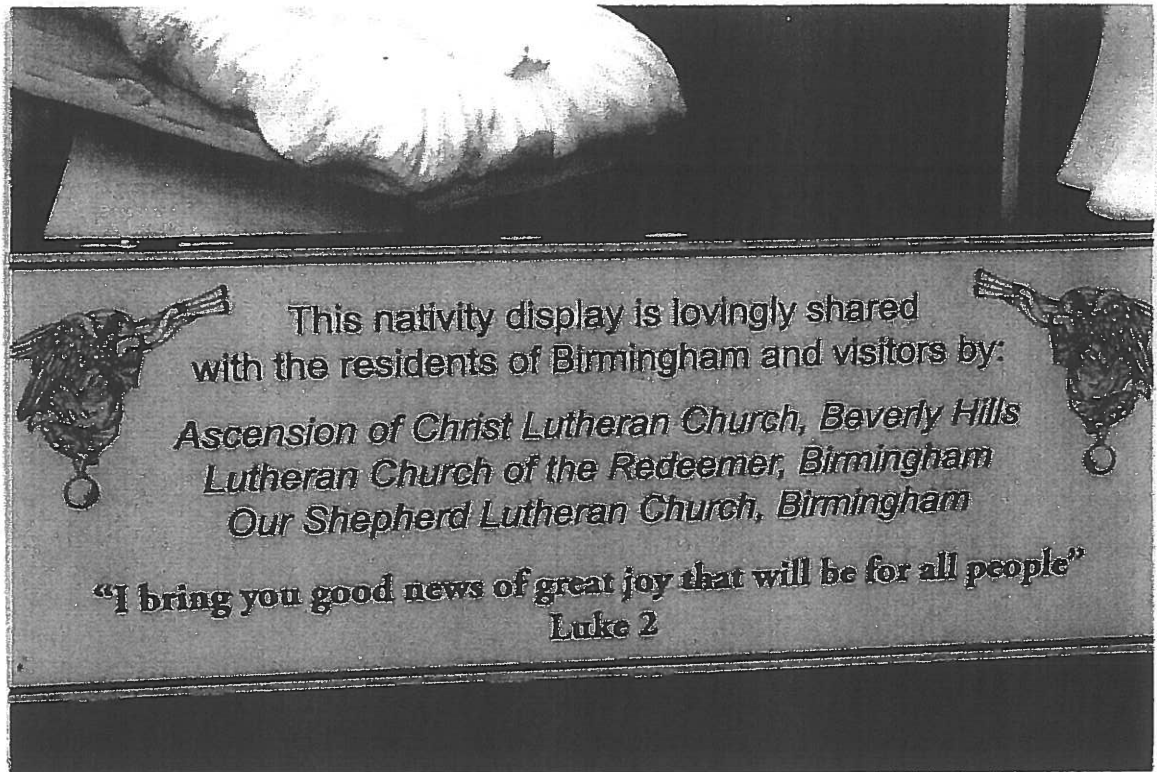 This nativity display is lovingly shared
with the residents of Birmingham and visitors by:
Ascension of Christ Lutheran Church, Beverly Hills
Lutheran Church of the Redeemer, Birmingham
Our Shepherd Lutheran Church, Birmingham
“I bring you good news of great joy that will be for all people”
Luke 2